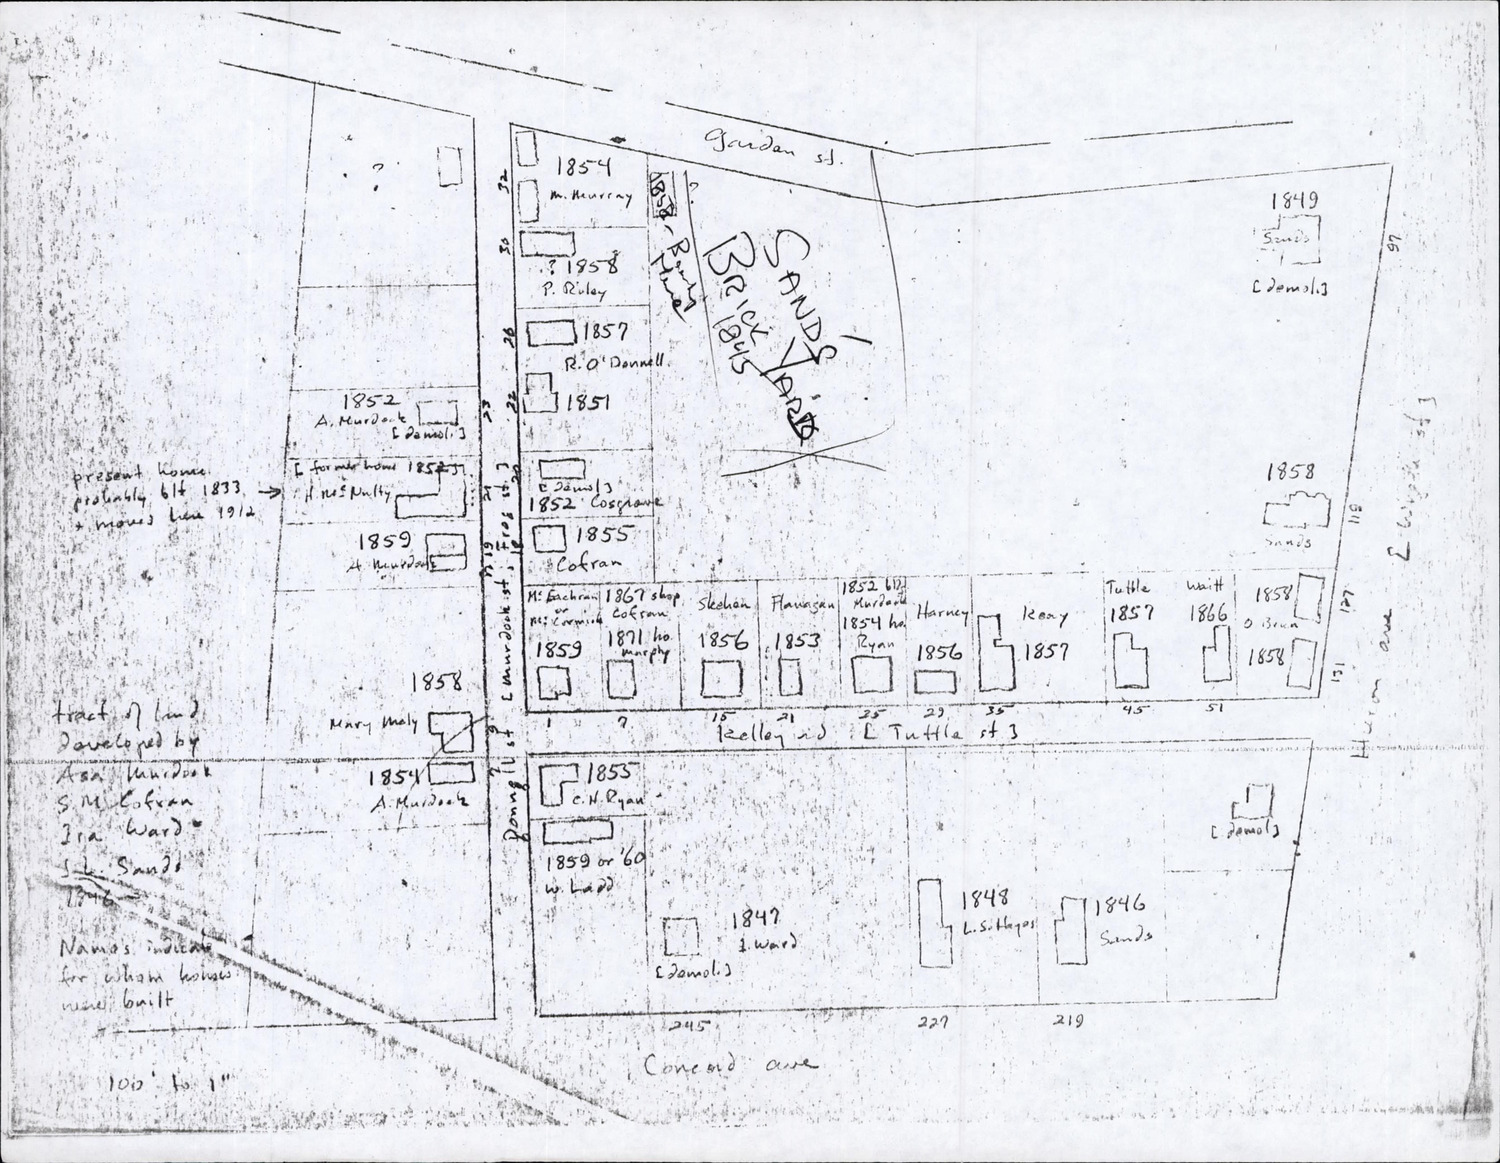 Garden st.
?
32
1854
M. Murray
1858 -
?
SANDS'
BRICK YARD
1845
1849
Sands
[demol.]
97
30
? 1858
P. Riley
26
1857
R. O'Donnell
22
1851
1852
A. Murdock
[demol.]
23
present home
probably blt 1833
+ moved here 1912
[former home 1852]
H. McNulty
21
20
[demol.]
1852 Cosgrove
1858
Sands
118
1859
A. Murdock
19
18
1855
Cofran
[Murdock st; Frog st.]
McEachran
or
McCormick
1859
1867 shop
Cofran
1871 ho.
Murphy
Skehan
1856
Flanagan
1853
1852 bld.
Murdock
1854 ho.
Ryan
Harney
1856
Keay
1857
Tuttle
1857
Waitt
1866
1858
O'Brien
1858
127
131
Huron ave
1
7
15
21
25
29
35
45
51
Kelley rd [Tuttle st]
1858
Mary Maly
9
7
1854
A. Murdock
tract of land
developed by
Asa Murdock
S. M. Cofran
Ira Ward
J. L. Sands
1846
Names indicate
for whom houses
were built
100' to 1"
1855
C. H. Ryan
1859 or '60
W. Ladd
1847
I. Ward
[demol.]
1848
1846
Sands
[demol.]
245
227
219
Concord ave